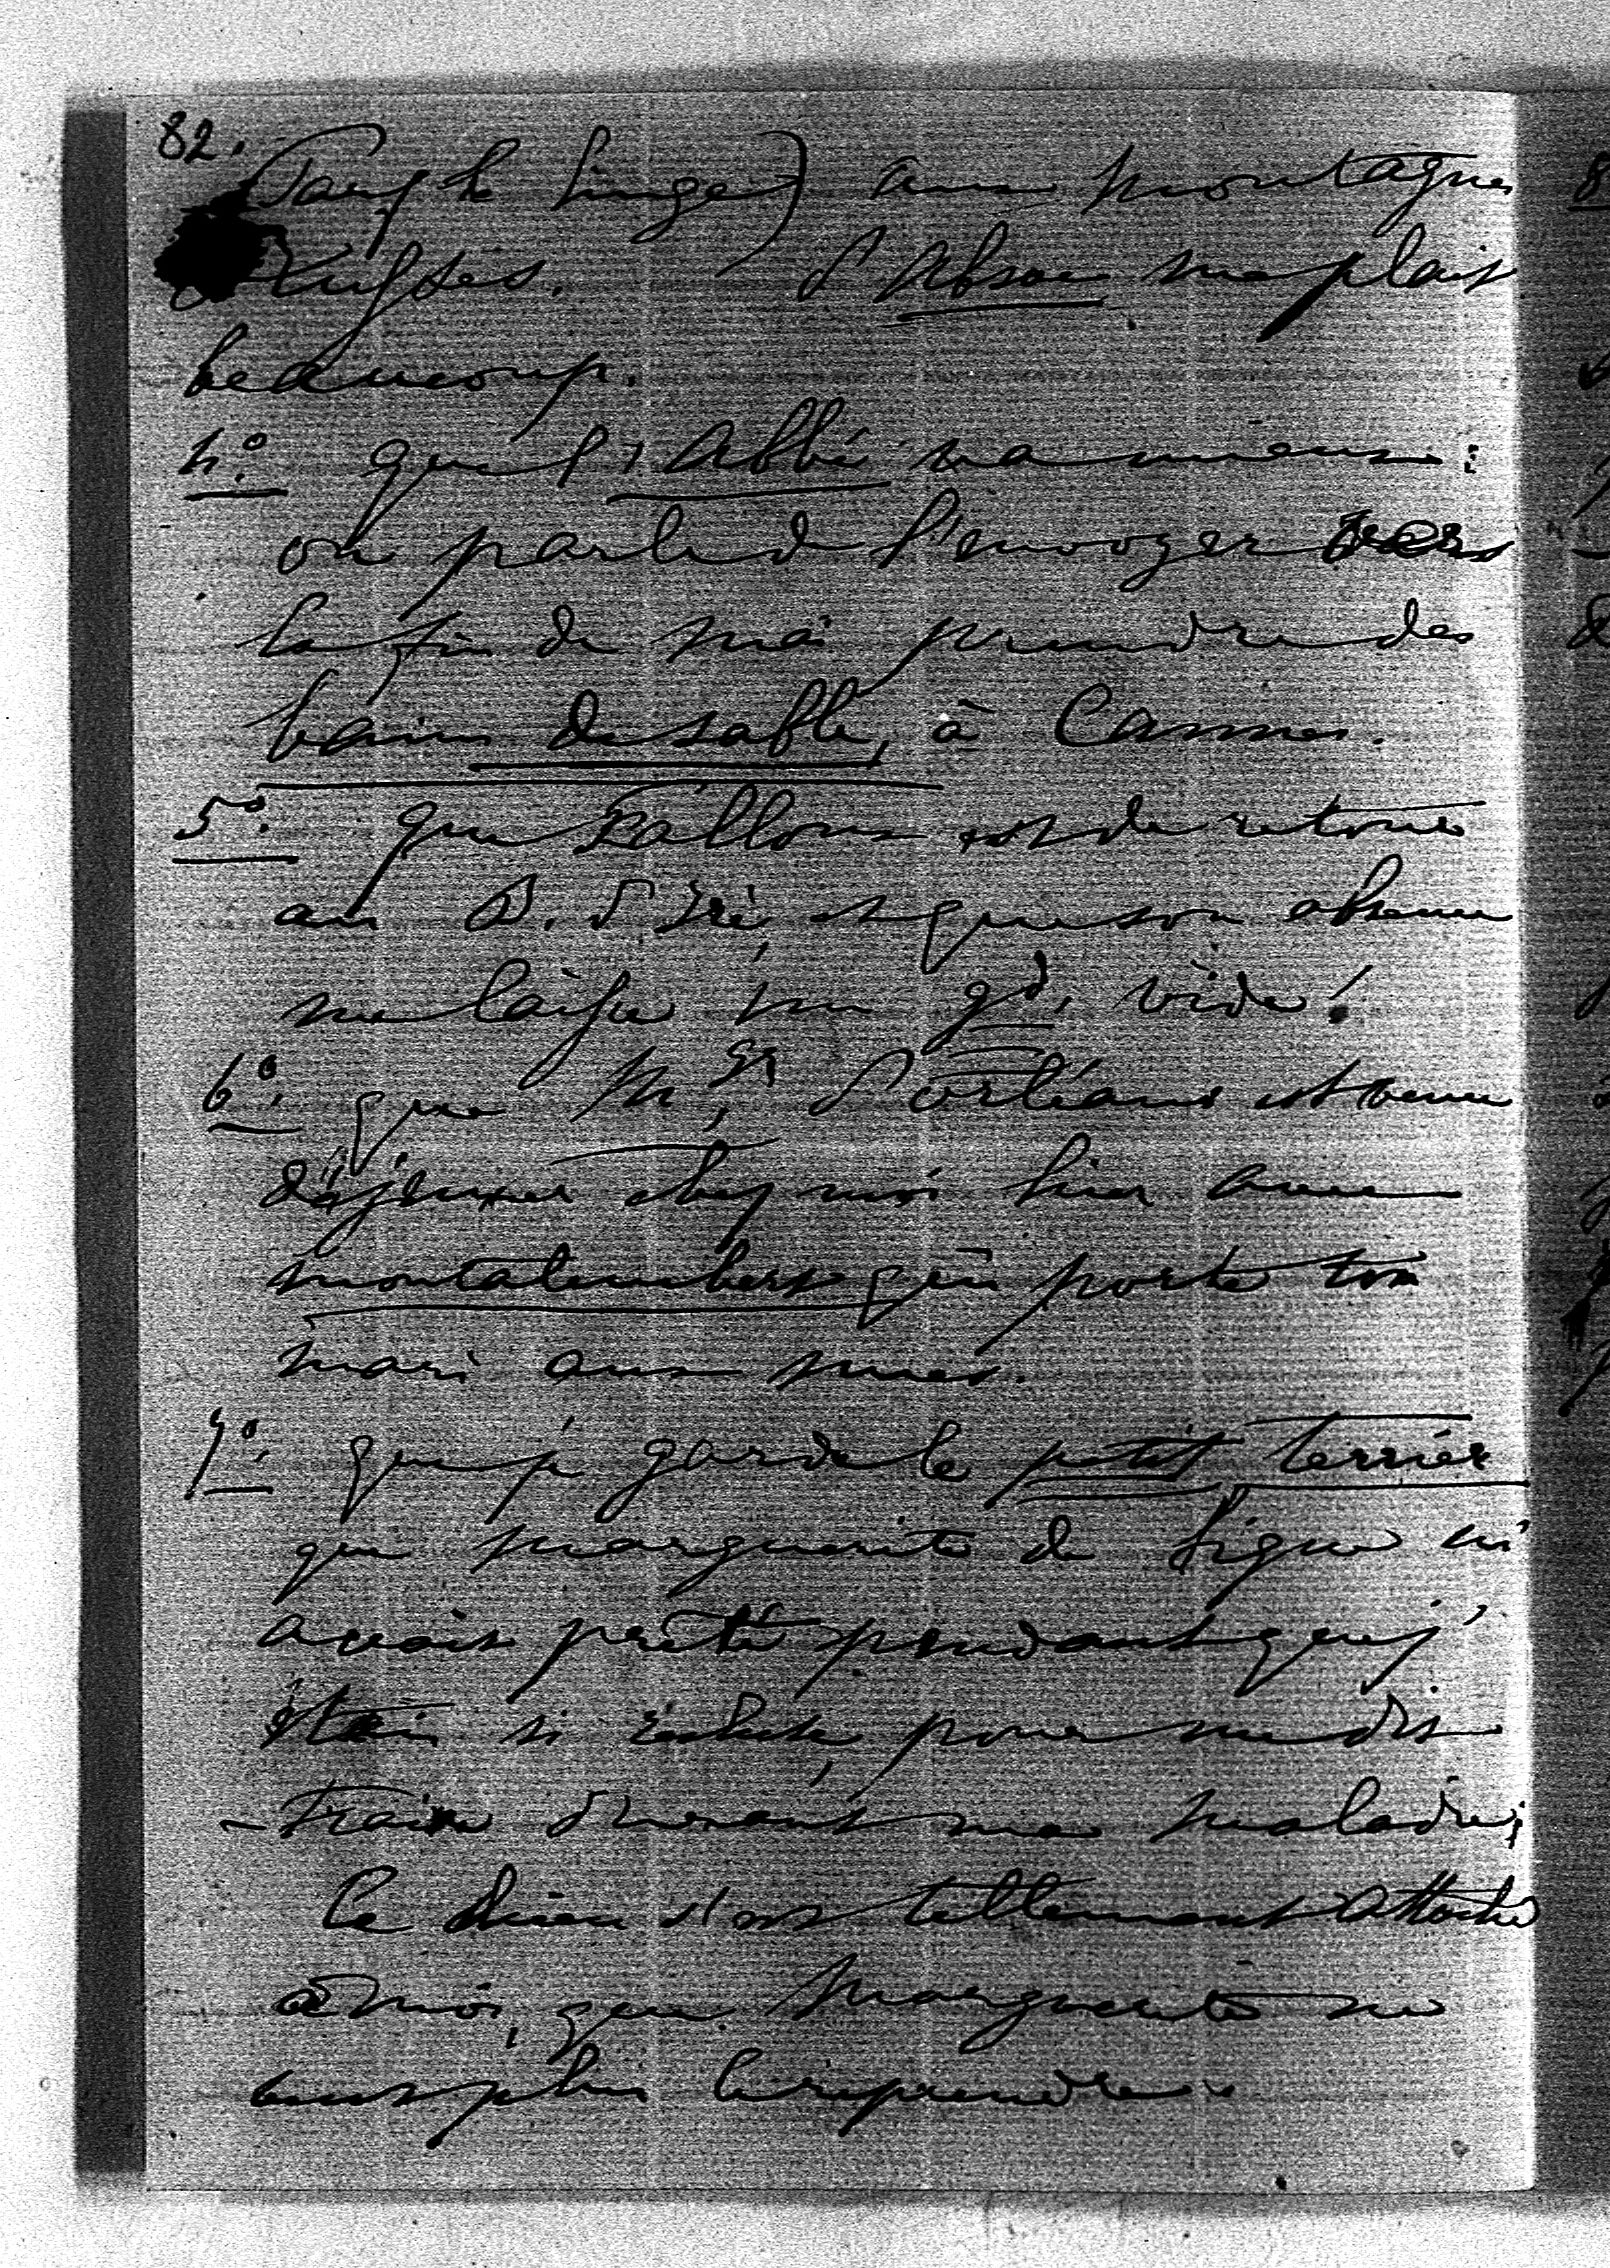 82.
Paraf le Singe) aux montagnes
Russes. d'Absac me plait
beaucoup.
4º. que l'Abbé va mieux:
on parle de l'envoyer vers
la fin de mai prendre des
bains de sable, à Cannes.
5º. que Falloux est de retour
au B. d'Iré, et que son absence
me laisse un gd. vide!
6º. que Mgr d'orléans est venu
déjeuner chez moi hier avec
montalembert qui porte ton
mari aux nues.
7º. que je garde le petit terrier
que marguerite de Ligne m'
avait prêté pendant que j'
étais si , pour me dis
-traire durant ma maladie;
Ce chien s'est tellement attaché
à moi, que Marguerite ne
veut plus le reprendre.